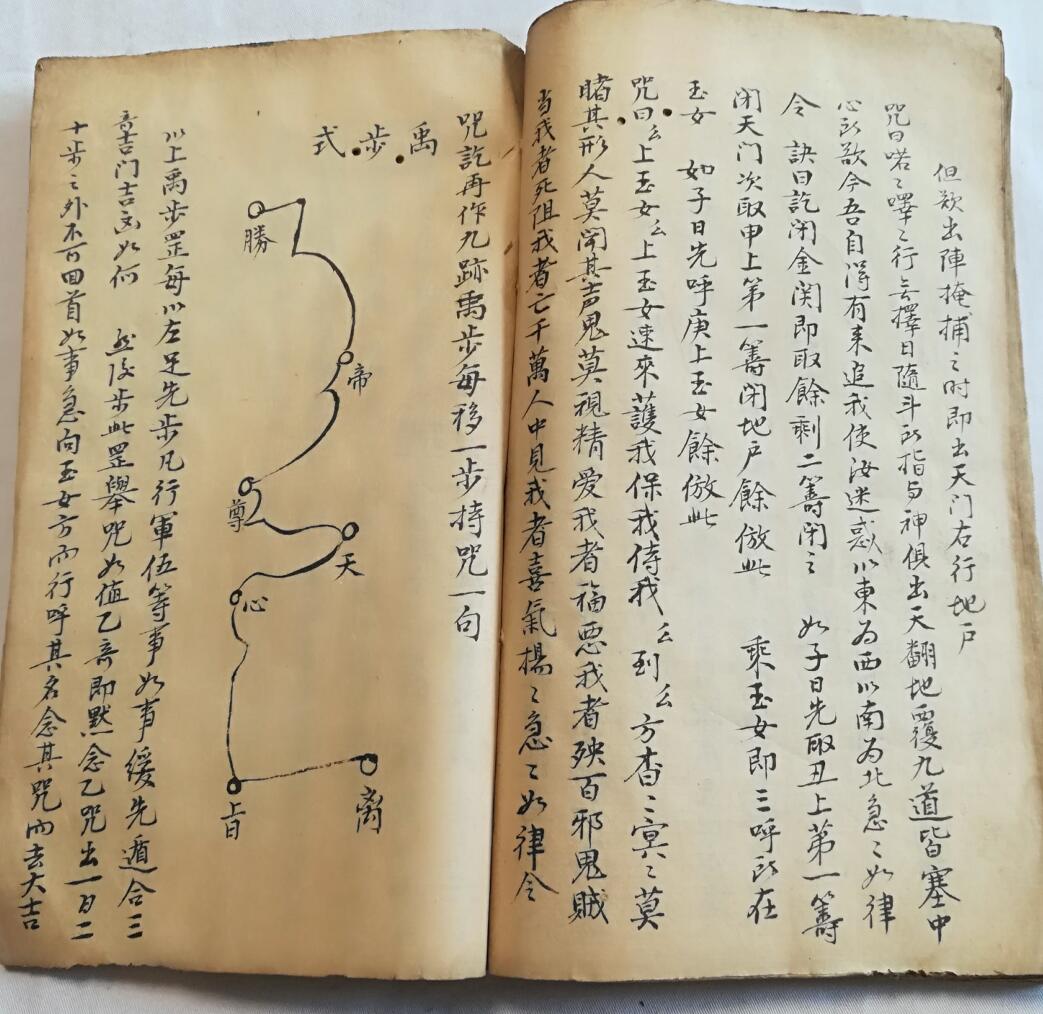 但欲出陣掩捕之时即出天门右行地户
咒曰喏〻嗶〻行无擇日隨斗所指与神俱出天翻地覆九道皆塞中
心所欲今吾自得有来追我使汝迷惑以東为西以南为北急〻如律
令 訣曰訖闭金関即取餘剩二筹闭之 如子日先取丑上第一籌
闭天门次取申上第一籌闭地户餘倣此 乘玉女即三呼所在
玉女 如子日先呼庚上玉女餘倣此
咒曰厶上玉女厶上玉女速來護我保我侍我厶到厶方杳〻冥〻莫
睹其形人莫闻其声鬼莫視精愛我者福惡我者殃百邪鬼賊
当我者死阻我者亡千萬人中見我者喜氣揚〻急〻如律令
咒訖再作九跡禹步每移一步持咒一句
禹步式
勝
帝
尊
天
心
旨
离
以上禹步罡每以左足先步凡行軍伍等事如事缓先遁合三
奇吉门吉凶如何 然後步此罡舉咒如值乙奇即黙念乙咒出一百二
十步之外不可回首如事急向玉女方而行呼其名念其咒而去大吉